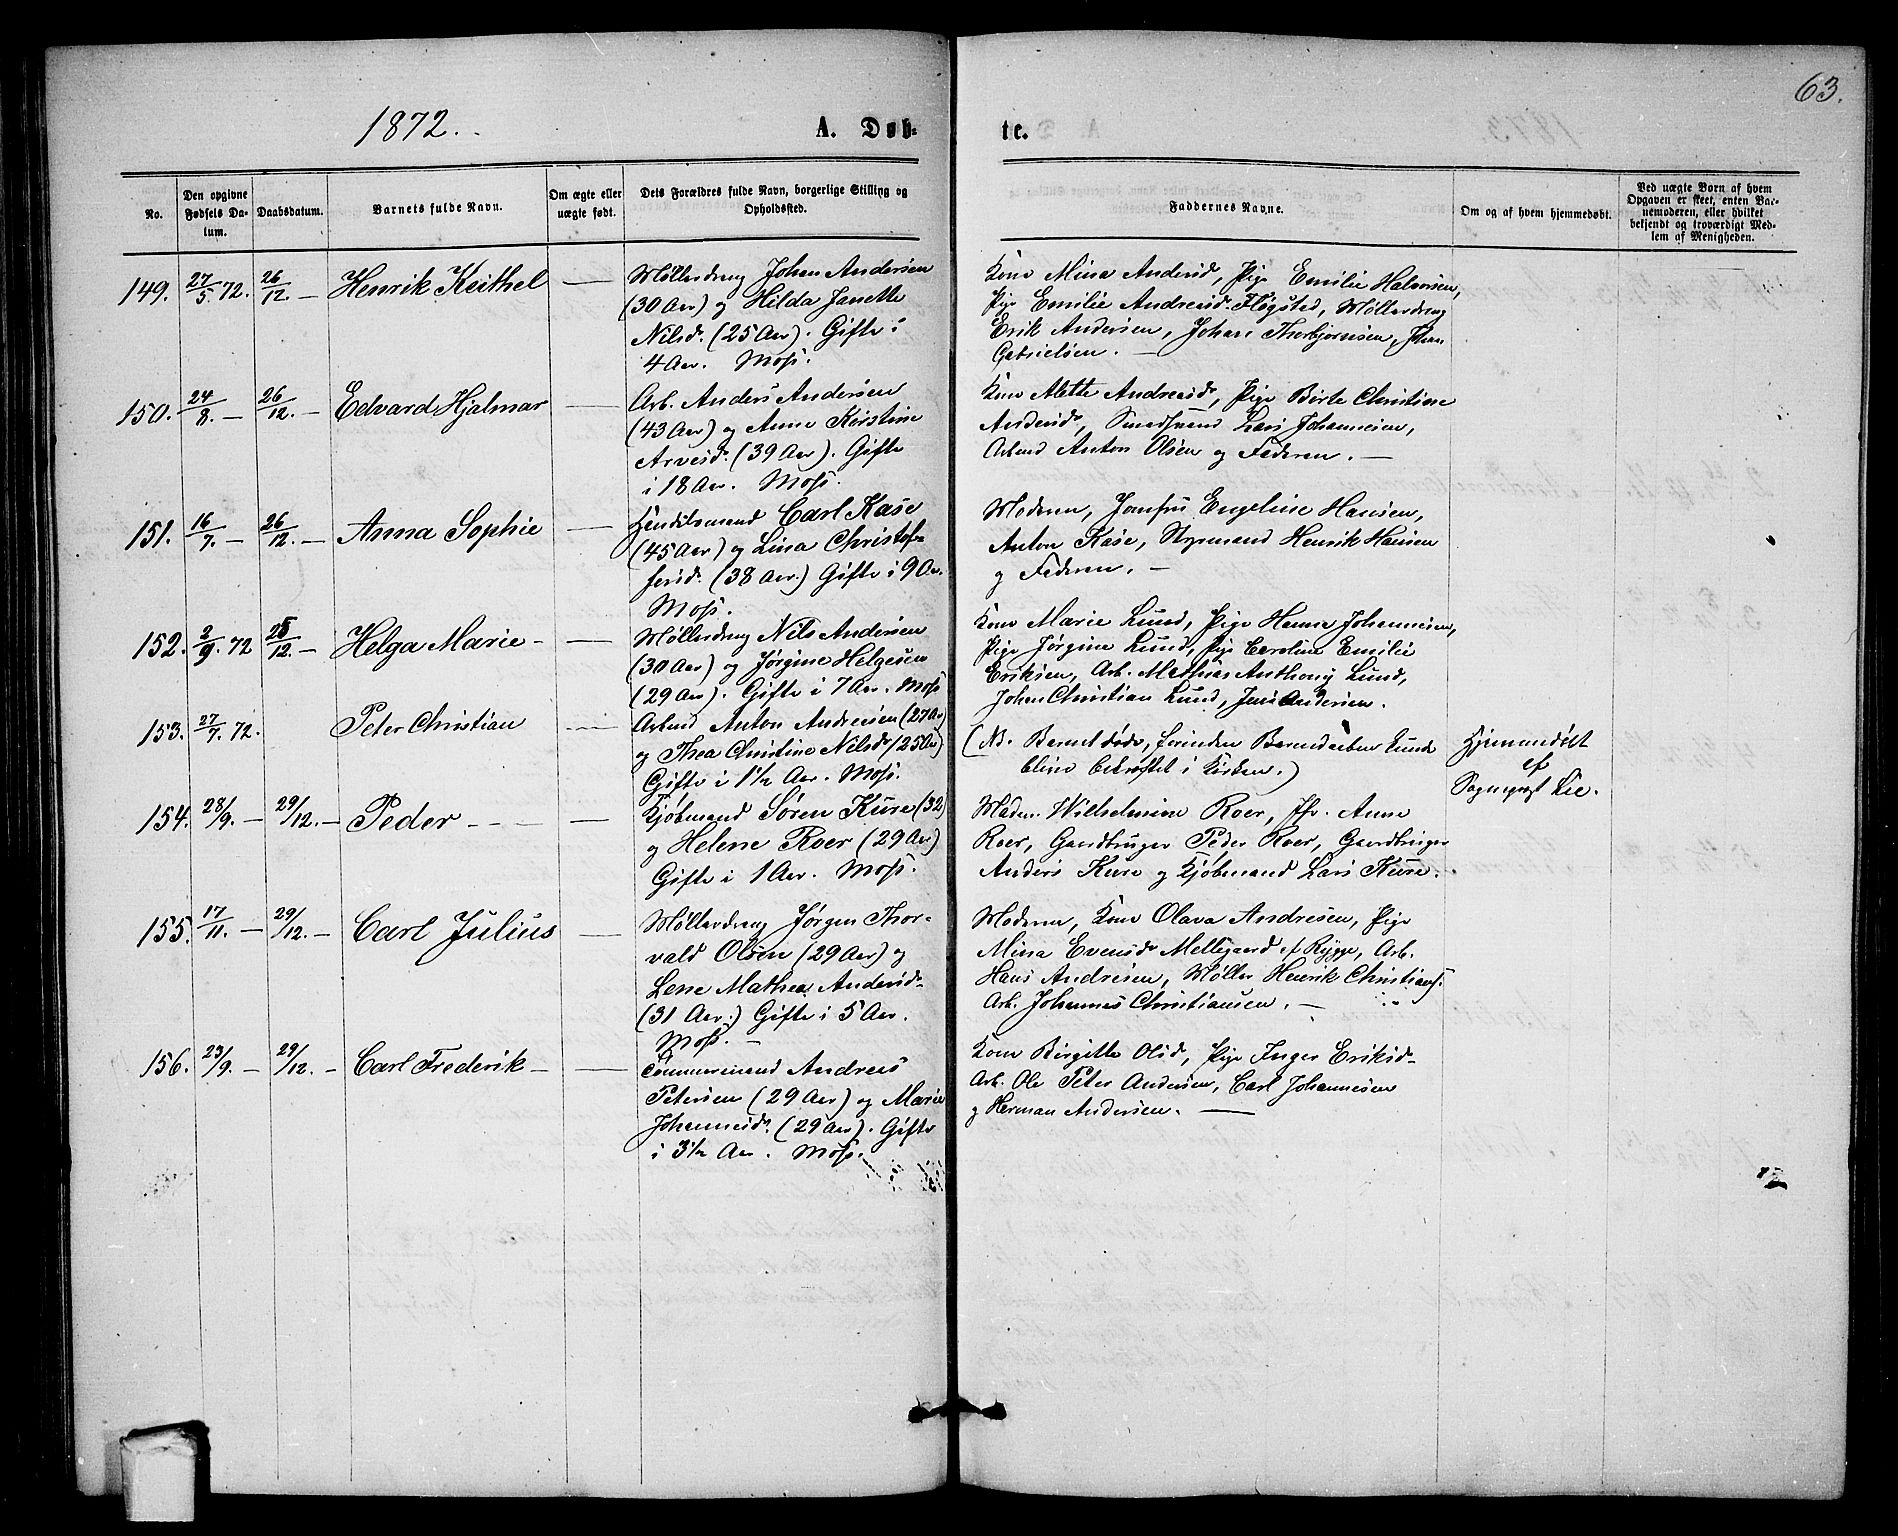 63.
1872.
A. Døb-
te.
No.
Den opgivne Fødsels Datum.
Daabsdatum.
Barnets fulde Navn.
Om ægte eller uægte født.
Dets Forældres fulde Navn, borgerlige Stilling og Opholdssted.
Faddernes Navne.
Om og af hvem hjemmedøbt.
Ved uægte Børn af hvem Opgaven er skeet, enten Barnemoderen, eller hvilket bekjendt og troværdigt Medlem af Menigheden.
149. 27/5 72. 26/12 — Henrik Keithel —
Møllerdreng Johan Andersen
(30 Aar) og Hilda Janette
Nilsd. (25 Aar). Gifte i
4 Aar. Moss.
Kone Mina Andersd, Pige Emilie Halvorsen,
Pige Emilie Andreasd. Fløgsted, Møllerdreng
Erik Andersen, Johan Thorbjørnsen, Johan
Gabrielsen. —
150. 24/8 — 26/12 — Edvard Hjalmar —
Arb. Anders Andersen
(43 Aar) og Anne Kirstine
Arvesd. (39 Aar). Gifte
i 18 Aar. Moss.
Kone Alette Andreasd, Pige Birte Christine
Andersd, Smedsvend Lars Johannesen,
Arbmd Anton Olsen og Faderen. —
151. 16/7 — 26/12 — Anna Sophie —
Handelsmand Carl Kase
(45 Aar) og Lina Christof-
fersd. (38 Aar.) Gifte i 9 Aar.
Moss.
Moderen, Jomfru Engeline Hansen,
Anton Kase, Styrmand Henrik Hansen
og Faderen. —
152. 2/9. 72 25/12 — Helga Marie — —
Møllerdreng Nils Andersen
(30 Aar) og Jørgine Helgesen
(29 Aar). Gifte i 7 Aar. Moss
Kone Marie Lund, Pige Hanna Johannesen,
Pige Jørgine Lund, Pige Caroline Emilie
Eriksen, Arb. Mathias Anthony Lund,
Johan Christian Lund, Jens Andersen.
153. 27/7. 72. Peter Christian —
Arbmd Anton Andersen (27 Aar)
og Thea Christine Nilsd (25 Aar)
Gifte i 1 1/2 Aar. Moss.
(Nb. Barnet døde, forinden Barnedaaben kunde
blive bekræftet i Kirken.)
Hjemmedøbt
af
Sognepræst Lie.
154. 28/9. — 29/12. — Peder — — —
Kjøbmand Søren Kure (32)
og Helene Roer (29 Aar)
Gifte i 1 Aar. Moss.
Madm. Wilhelmine Roer, Jfr. Anne
Roer, Gaardbruger Peder Roer, Gaardbruger
Anders Kure og Kjøbmand Lars Kure.
155. 17/11. — 29/12. — Carl Julius —
Møllerdreng Jørgen Thor-
vald Olsen (29 Aar) og
Lene Mathea Andersd.
(31 Aar.) Gifte i 5 Aar.
Moss. —
Moderen, Kone Olava Andresen, Pige
Mina Evensd Mellegaard af Rygge, Arb.
Hans Andresen, Møller Henrik Christians.
Arb. Johannes Christiansen. —
156. 23/9. — 29/12. — Carl Frederik — —
Tømmermand Andreas
Petersen (29 Aar) og Marie
Johannesd. (29 Aar). Gifte
i 3 1/2 Aar. Moss.
Kone Birgitte Olsd, Pige Inger Eriksd.
Arb. Ole Peter Andersen, Carl Johannesen
og Herman Andersen. —